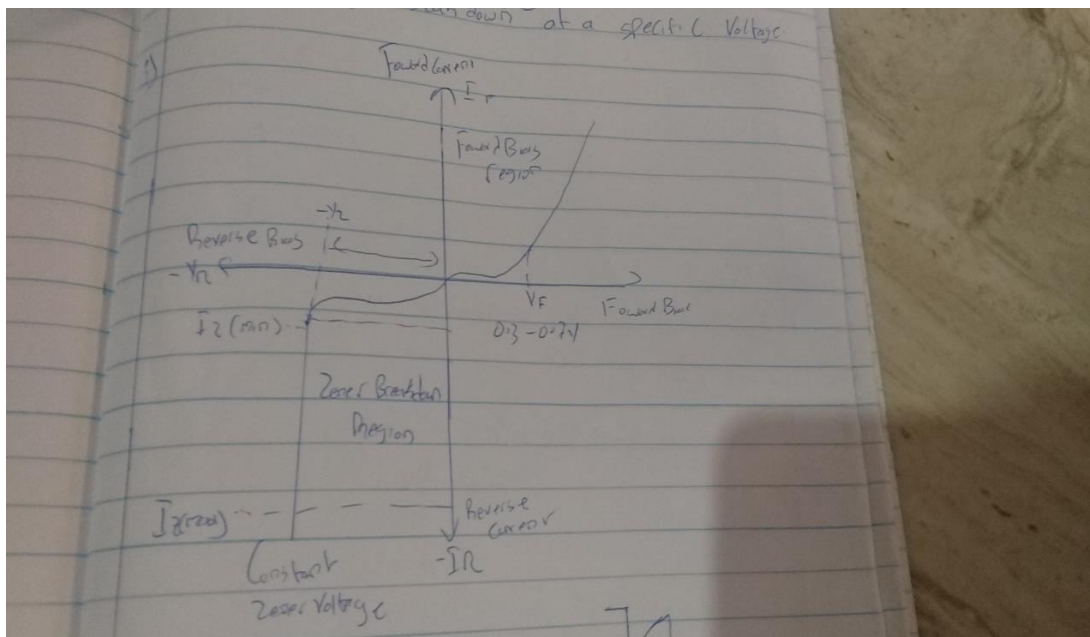 down at a specific Voltage
Foward Current
I F
Foward Bias
region
-Vz
Reverse Bias
-VR
Iz(min)
VF
0.3-0.7V
Foward Bias
Zener Breakdown
Region
Iz(max)
Reverse
Current
-IR
Constant
Zener Voltage